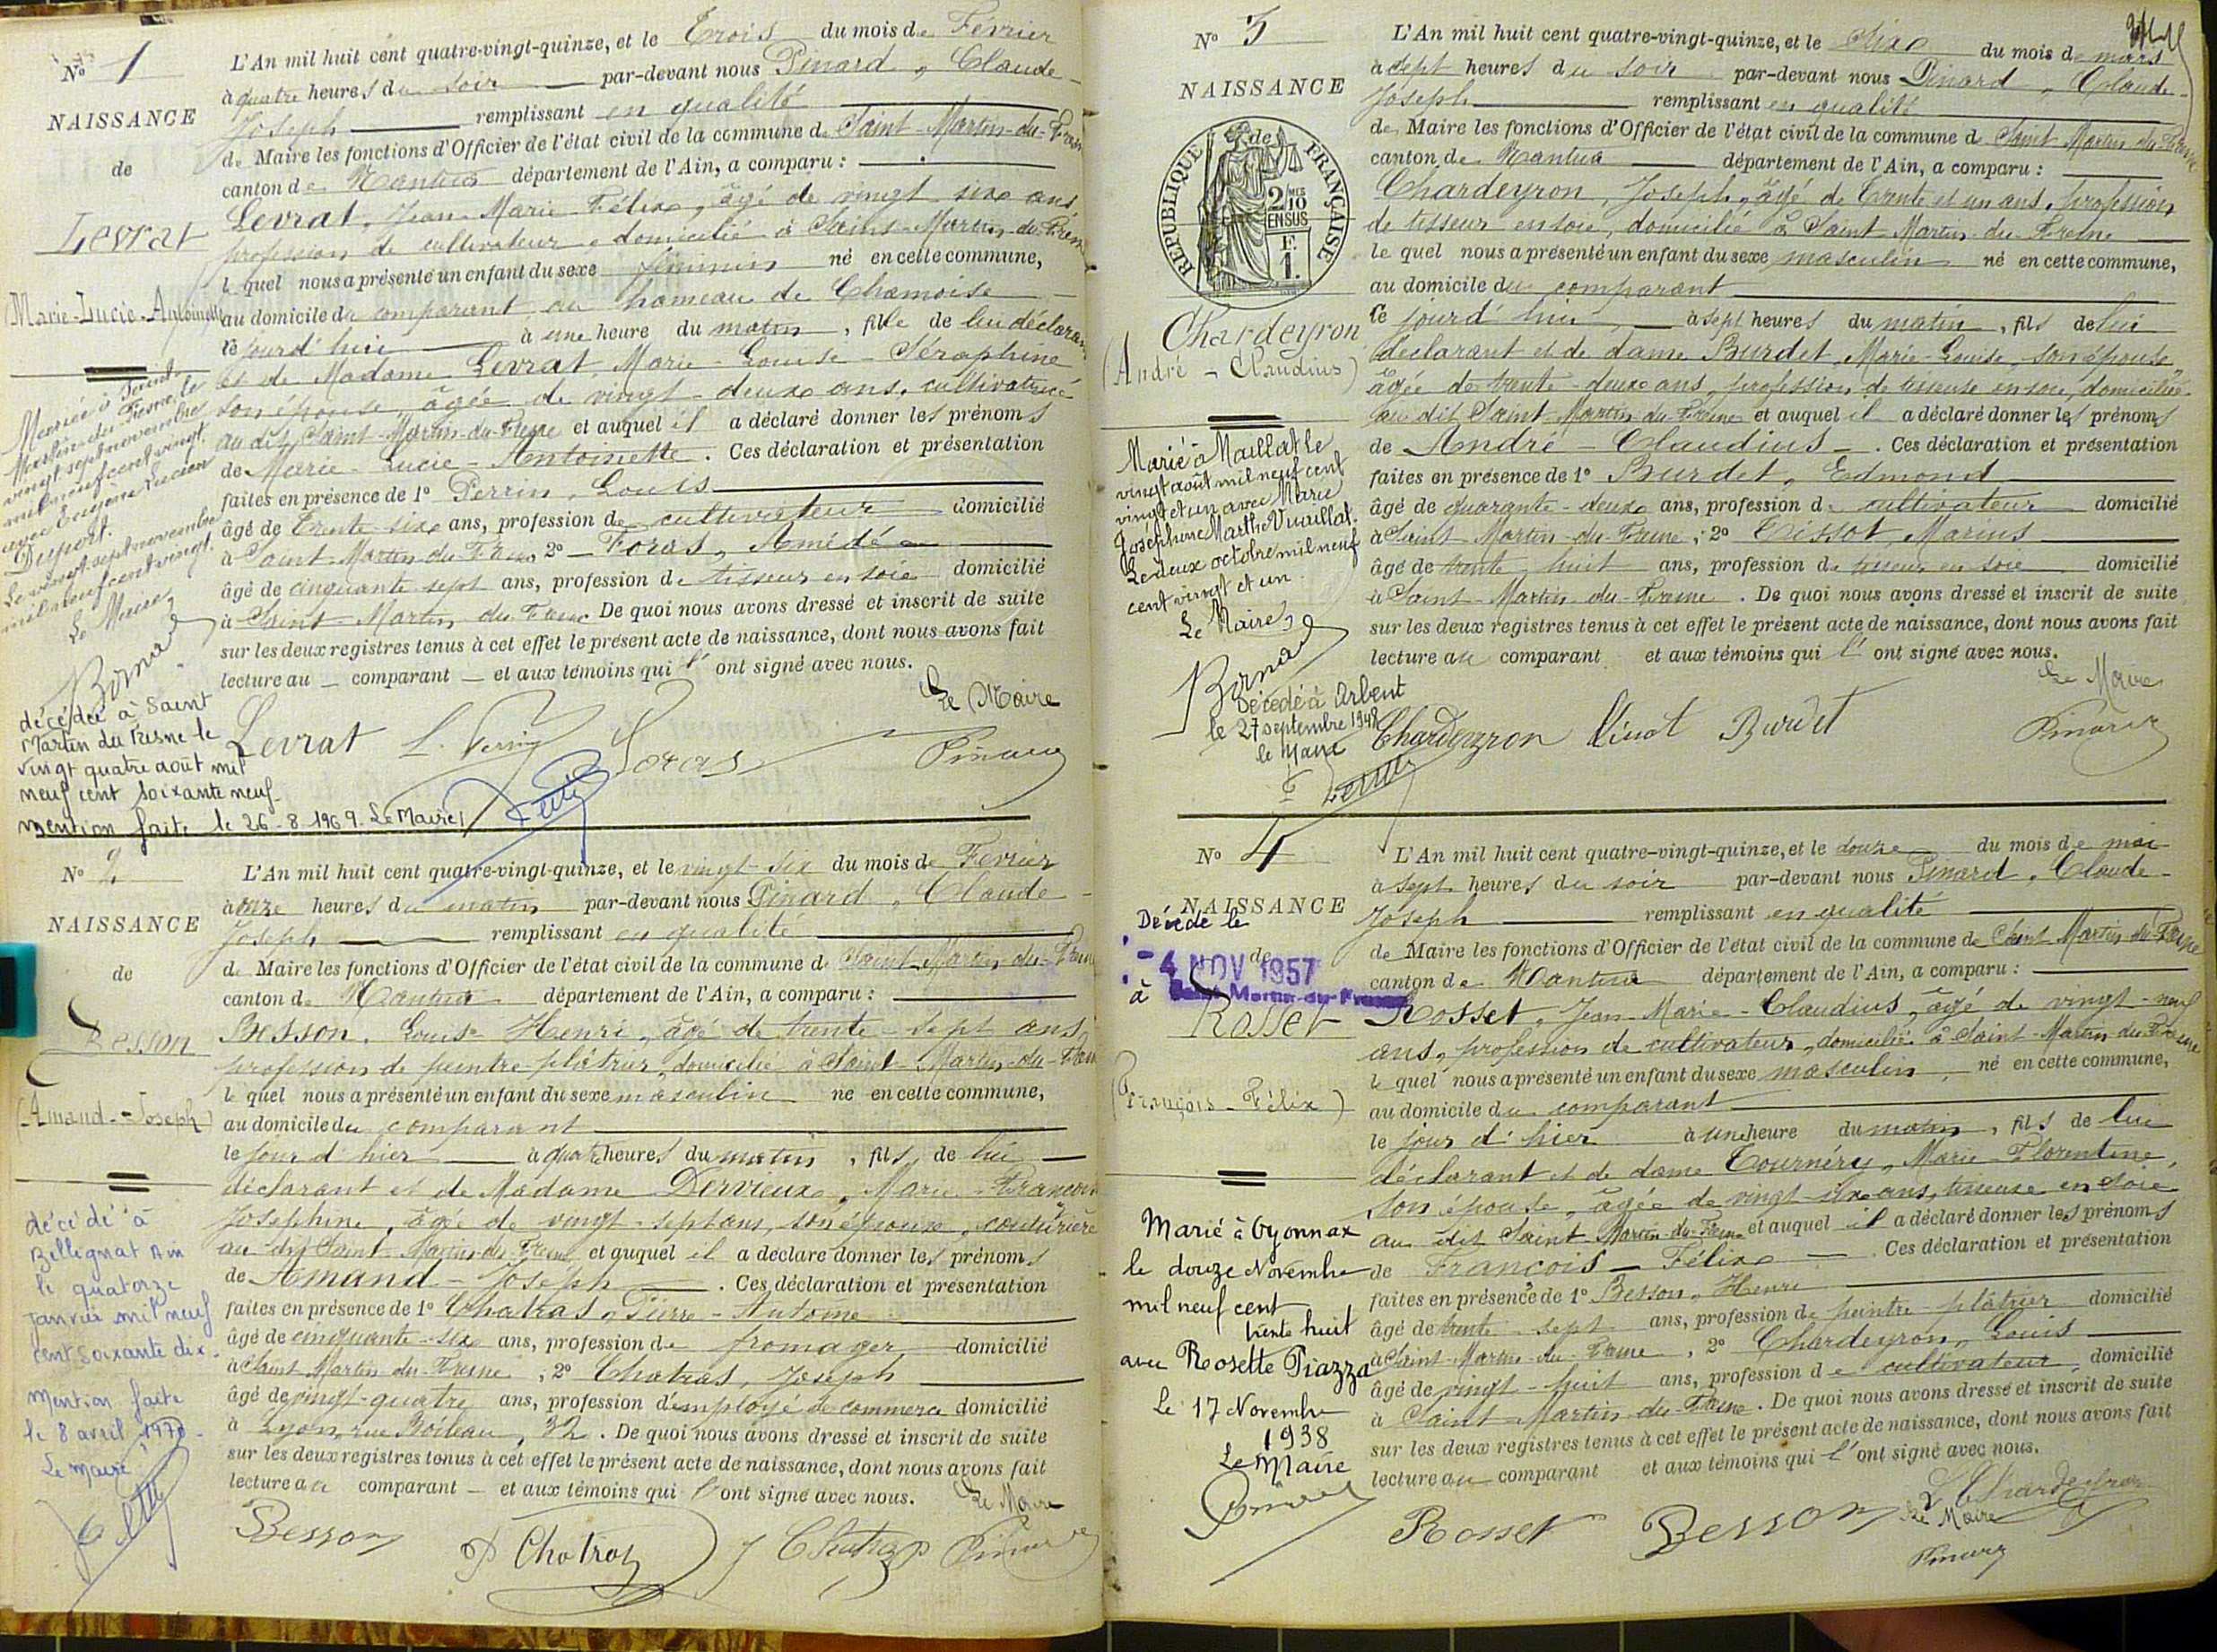 N° 1
NAISSANCE
de
Levrat
Marie-Lucie-Antoinette
Mariée à Saint
Martin du Fresne, le
vingt sept novembre
mil neuf cent vingt
avec Eugène Lucien
Duport.
Le vingt sept novembre
mil neuf cent vingt.
Le Maire,
décédée à Saint
Martin du Fresne le
vingt quatre août mil
neuf cent soixante neuf.
mention faite le 26-8-1969. Le Maire,
L'An mil huit cent quatre-vingt-quinze, et le Trois du mois de Février
à quatre heures du soir par-devant nous Pinard, Claude-
Joseph remplissant en qualité
de Maire les fonctions d'Officier de l'état civil de la commune de Saint-Martin-du-Fresne
canton de Nantua département de l'Ain, a comparu :
Levrat, Jean-Marie-Félix, âgé de vingt six ans,
profession de cultivateur, domicilié à Saint-Martin-du-Fresne
le quel nous a présenté un enfant du sexe féminin né en cette commune,
au domicile du comparant, au hameau de Chamoise
ce jourd'hui à une heure du matin, fille de lui déclarant
et de Madame Levrat, Marie-Louise-Séraphine
son épouse, âgée de vingt-deux ans, cultivatrice
au dit Saint-Martin-du-Fresne et auquel il a déclaré donner les prénoms
de Marie-Lucie-Antoinette. Ces déclaration et présentation
faites en présence de 1° Perrin, Louis
âgé de Trente-six ans, profession de cultivateur domicilié
à Saint-Martin du Fresne, 2° Foras, Amédée
âgé de cinquante sept ans, profession de tisseur en soie domicilié
à Saint-Martin du Fresne. De quoi nous avons dressé et inscrit de suite
sur les deux registres tenus à cet effet le présent acte de naissance, dont nous avons fait
lecture au comparant et aux témoins qui l'ont signé avec nous.
Le Maire
Levrat L. Perrin Foras Pinard
N° 2
NAISSANCE
de
Besson
(Amand-Joseph)
décédé à
Bellignat Ain
le quatorze
janvier mil neuf
cent soixante dix.
Mention faite
le 8 avril 1970.
Le Maire
L'An mil huit cent quatre-vingt-quinze, et le vingt-six du mois de Février
à onze heures du matin par-devant nous Pinard, Claude-
Joseph remplissant en qualité
de Maire les fonctions d'Officier de l'état civil de la commune de Saint-Martin-du-Fresne
canton de Nantua département de l'Ain, a comparu :
Besson, Louis Henri, âgé de trente-sept ans,
profession de peintre-plâtrier, domicilié à Saint-Martin-du-Fresne
le quel nous a présenté un enfant du sexe masculin né en cette commune,
au domicile du comparant
le jour d'hier à quatre heures du matin, fils de lui
déclarant et de Madame Dervieux, Marie-Françoise
Joséphine, âgée de vingt-sept ans, son épouse, couturière
au dit Saint-Martin-du-Fresne et auquel il a déclaré donner les prénoms
de Amand-Joseph. Ces déclaration et présentation
faites en présence de 1° Chatras, Pierre-Antoine
âgé de cinquante-six ans, profession de fromager domicilié
à Saint-Martin du Fresne, 2° Chatras, Joseph
âgé de vingt-quatre ans, profession d'employé de commerce domicilié
à Lyon, rue Boileau, 32. De quoi nous avons dressé et inscrit de suite
sur les deux registres tenus à cet effet le présent acte de naissance, dont nous avons fait
lecture au comparant et aux témoins qui l'ont signé avec nous.
Le Maire
Besson P Chatras J Chatras Pinard
N° 3
NAISSANCE
de
RÉPUBLIQUE FRANÇAISE
2/10 MES
EN SUS
F.
1.
Chardeyron
(André-Claudius)
Marié à Maillat le
vingt août mil neuf cent
vingt et un avec Marie
Josephine Marthe Vuaillat.
Le deux octobre mil neuf
cent vingt et un.
Le Maire,
Décédé à Arbent
le 27 septembre 1948
le Maire
L'An mil huit cent quatre-vingt-quinze, et le Six du mois de mars
à sept heures du soir par-devant nous Pinard, Claude-
Joseph remplissant en qualité
de Maire les fonctions d'Officier de l'état civil de la commune de Saint Martin du Fresne
canton de Nantua département de l'Ain, a comparu :
Chardeyron, Joseph, âgé de trente et un ans, profession
de tisseur en soie, domicilié à Saint-Martin-du-Fresne
le quel nous a présenté un enfant du sexe masculin né en cette commune,
au domicile du comparant
ce jourd'hui à sept heures du matin, fils de lui
déclarant et de dame Burdet, Marie-Louise, son épouse
âgée de trente-deux ans, profession de tisseuse en soie, domiciliée
au dit Saint-Martin du Fresne et auquel il a déclaré donner les prénoms
de André-Claudius. Ces déclaration et présentation
faites en présence de 1° Burdet, Edmond
âgé de quarante-deux ans, profession de cultivateur domicilié
à Saint Martin-du-Fresne, 2° Tissot, Marius
âgé de trente huit ans, profession de tisseur en soie domicilié
à Saint-Martin-du-Fresne. De quoi nous avons dressé et inscrit de suite
sur les deux registres tenus à cet effet le présent acte de naissance, dont nous avons fait
lecture au comparant et aux témoins qui l'ont signé avec nous.
Le Maire
Chardeyron Burdet Pinard
N° 4
NAISSANCE
de
Décédé le
-4 NOV 1957
à Saint-Martin-du-Fresne
Rosset
(François-Félix)
Marié à Oyonnax
le douze Novembre
mil neuf cent
trente huit
avec Rosette Piazza
Le 17 Novembre
1938
Le Maire
L'An mil huit cent quatre-vingt-quinze, et le douze du mois de mai
à sept heures du soir par-devant nous Pinard, Claude-
Joseph remplissant en qualité
de Maire les fonctions d'Officier de l'état civil de la commune de Saint Martin du Fresne
canton de Nantua département de l'Ain, a comparu :
Rosset, Jean-Marie-Claudius, âgé de vingt-neuf
ans, profession de cultivateur, domicilié à Saint-Martin du Fresne
le quel nous a présenté un enfant du sexe masculin, né en cette commune,
au domicile du comparant
le jour d'hier à une heure du matin, fils de lui
déclarant et de dame Tournéry, Marie-Florentine,
son épouse, âgée de vingt-six ans, tisseuse en soie
au dit Saint Martin-du-Fresne et auquel il a déclaré donner les prénoms
de François-Félix. Ces déclaration et présentation
faites en présence de 1° Besson, Henri
âgé de trente-sept ans, profession de peintre-plâtrier domicilié
à Saint-Martin-du-Fresne, 2° Chardeyron, Louis
âgé de vingt-huit ans, profession de cultivateur, domicilié
à Saint-Martin-du-Fresne. De quoi nous avons dressé et inscrit de suite
sur les deux registres tenus à cet effet le présent acte de naissance, dont nous avons fait
lecture au comparant et aux témoins qui l'ont signé avec nous.
L Chardeyron
Rosset Besson Le Maire
Pinard